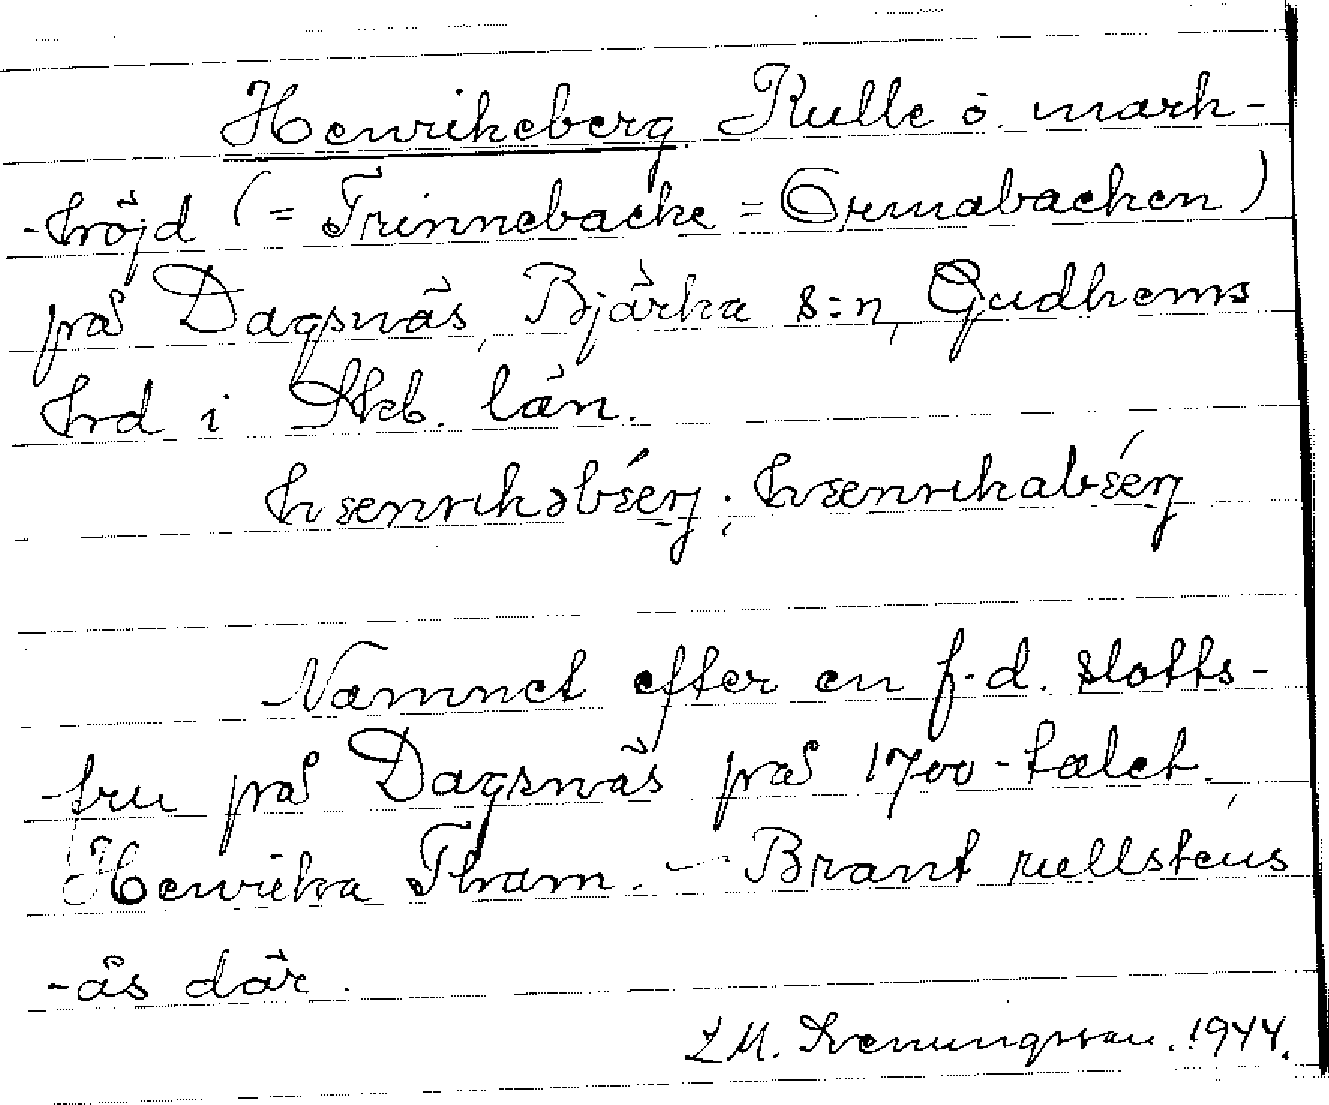 Henrikeberg. Kulle o. mark-
-höjd (= Trinnebacke = Ormabacken)
på Dagsnäs, Bjärka s:n, Gudhems
hrd i Skb. län.
hænrıkəbǽrj; hænrıkabǽrj
Namnet efter en f.d. slotts-
fru på Dagsnäs på 1700-talet,
Henrika Tham. – Brant rullstens
-ås där.
L M. Svenungsson. 1944.